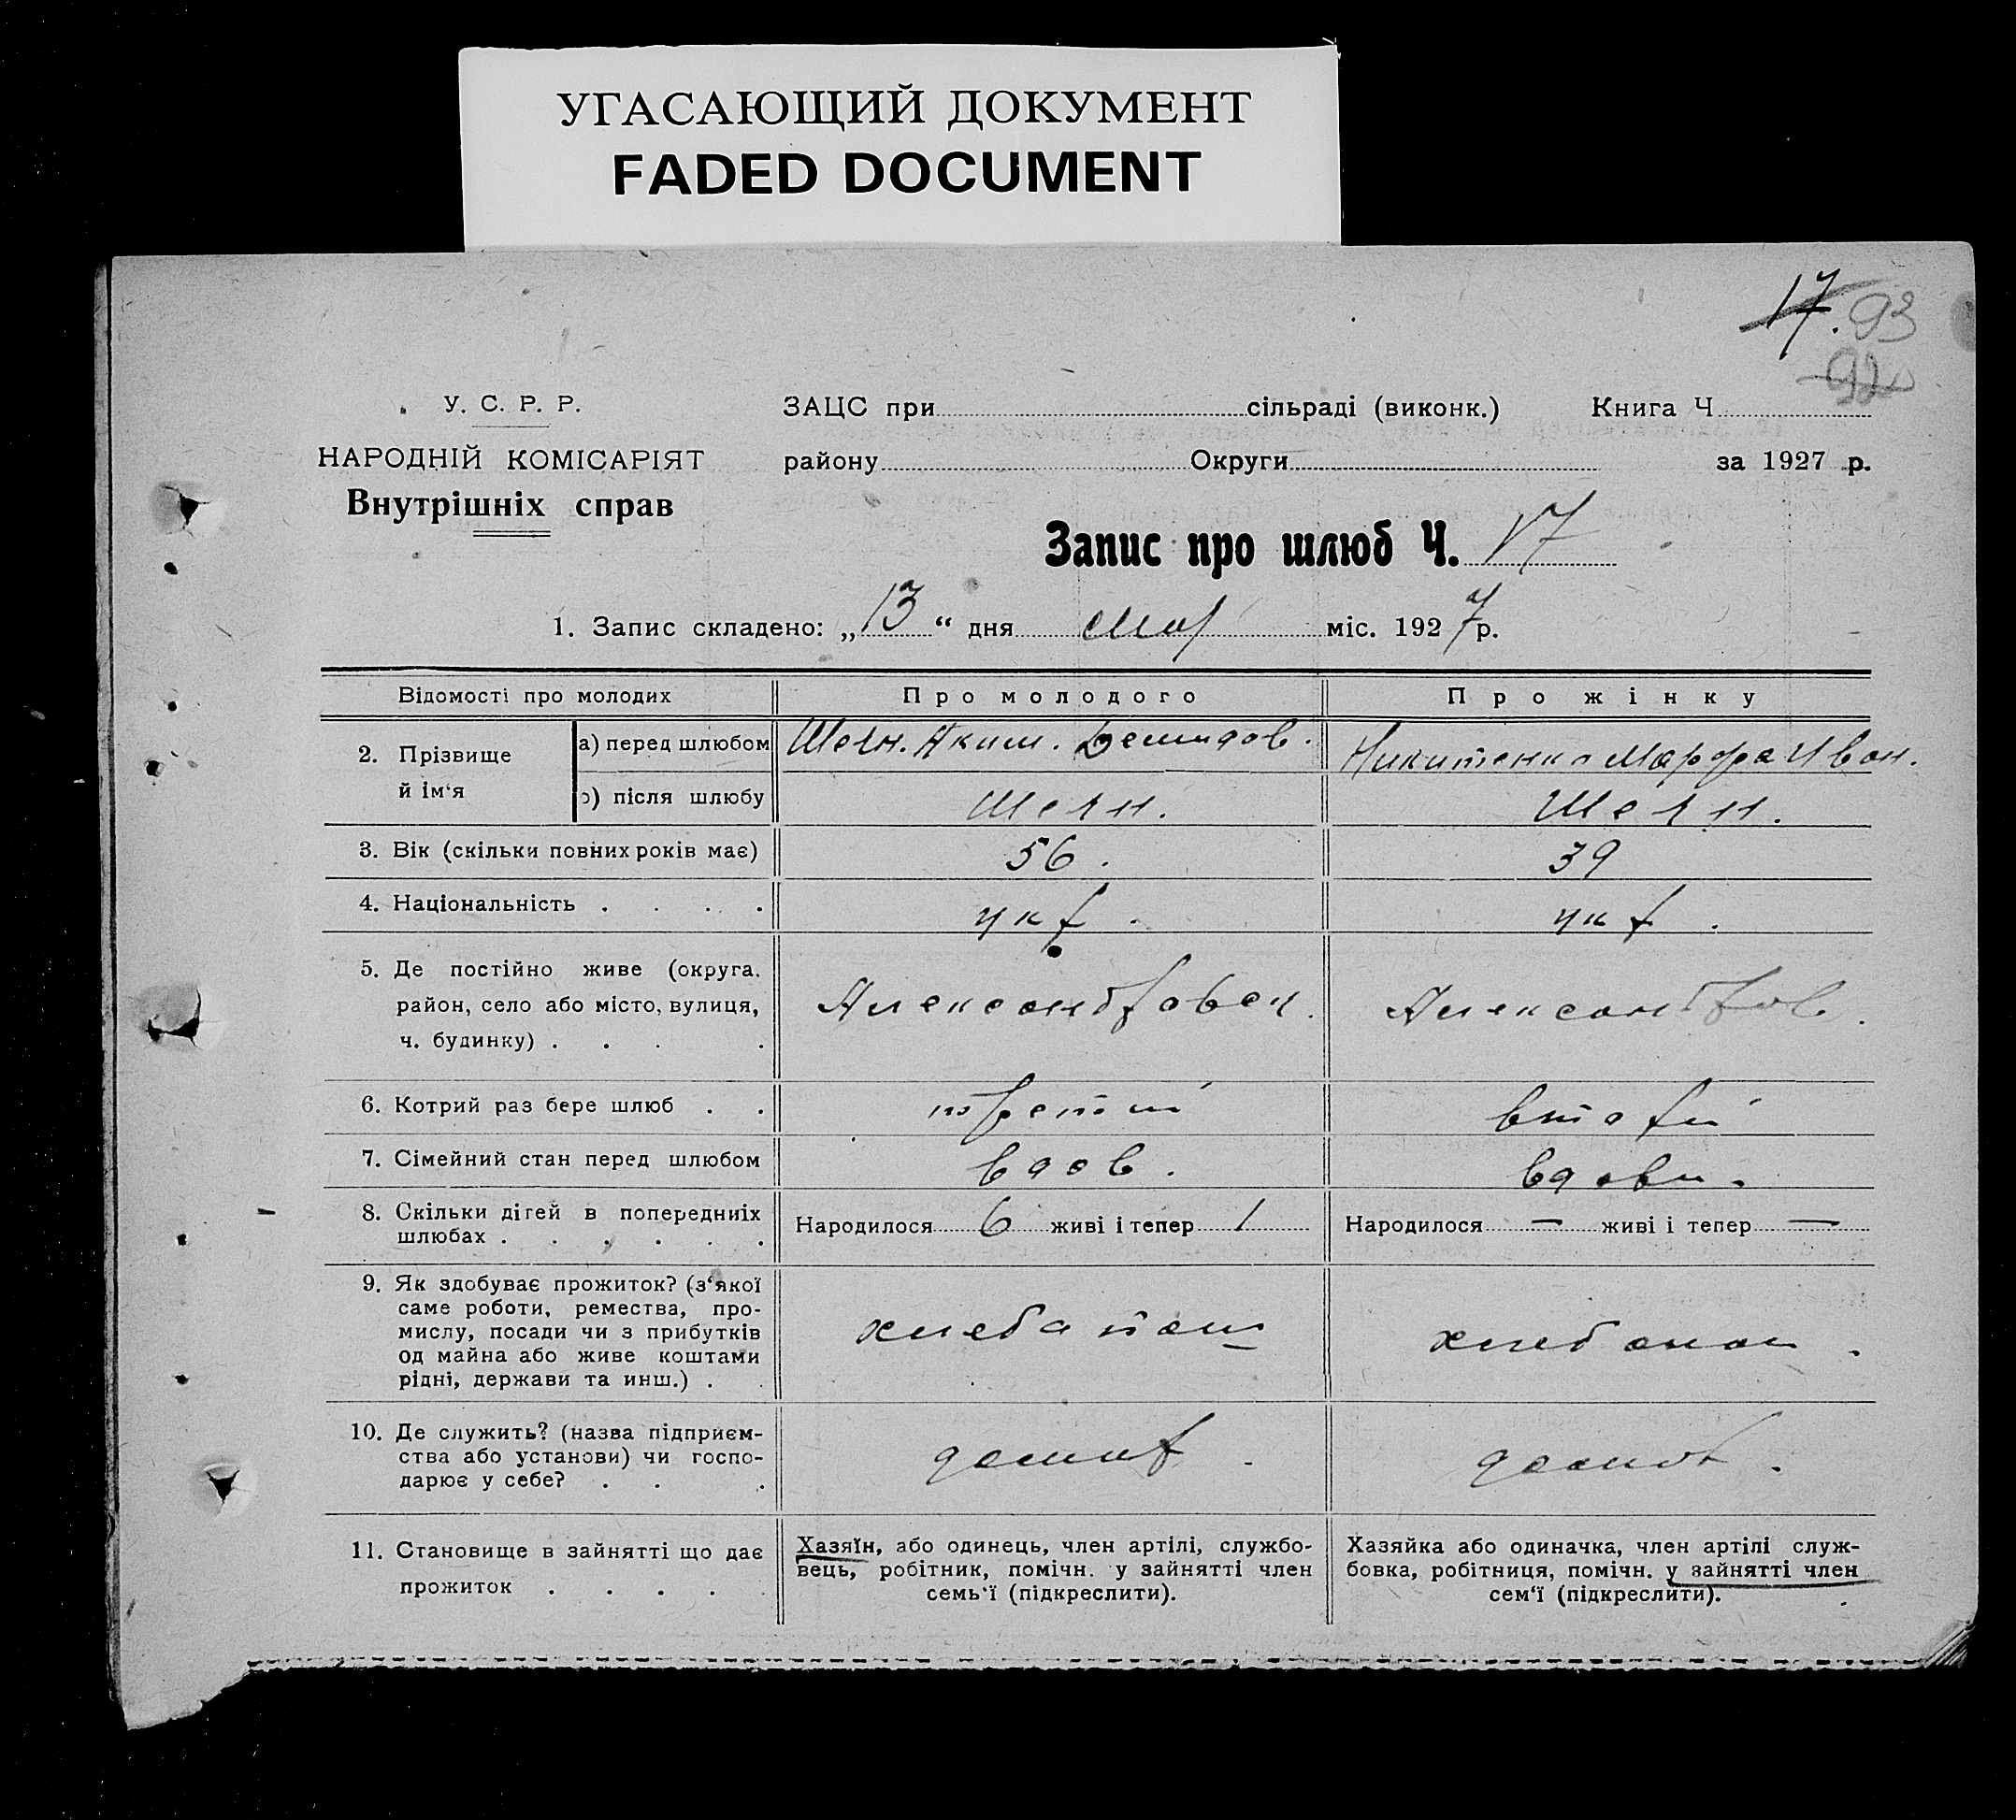 УГАСАЮЩИЙ ДОКУМЕНТ
FADED DOCUMENT
17. 93
92
У. С. Р. Р.
НАРОДНІЙ КОМІСАРІЯТ
Внутрішніх справ
ЗАЦС при сільраді (виконк.) Книга Ч
району Округи за 1927 р.
Запис про шлюб Ч. 17
1. Запис складено: „13“ дня мар міс. 1927 р.
Відомості про молодих Про молодого Про жінку
2. Прізвище й ім‘я
а) перед шлюбом Аким. Демидов. Никитенко Марфа Иван.
б) після шлюбу
3. Вік (скільки повних років має) 56. 39
4. Національність . . . . укр. укр.
5. Де постійно живе (округа,
район, село або місто, вулиця,
ч. будинку) . . . .
Александровск. Александров.
6. Котрий раз бере шлюб . . третий вторий
7. Сімейний стан перед шлюбом вдов. вдови.
8. Скільки дітей в попередниіх
шлюбах . . . . . .
Народилося 6 живі і тепер 1 Народилося — живі і тепер —
9. Як здобуває прожиток? (з‘якої
саме роботи, ремества, про-
мислу, посади чи з прибутків
од майна або живе коштами
рідні, держави та инш.) . .
хлебапаш хлебапаш.
10. Де служить? (назва підприєм-
ства або установи) чи госпо-
дарює у себе? . . .
11. Становище в зайнятті що дає
прожиток . . . . .
Хазяїн, або одинець, член артілі, службо-
вець, робітник, помічн. у зайнятті член
семь‘ї (підкреслити).
Хазяйка або одиначка, член артілі служ-
бовка, робітниця, помічн. у зайнятті член
сем‘ї (підкреслити).